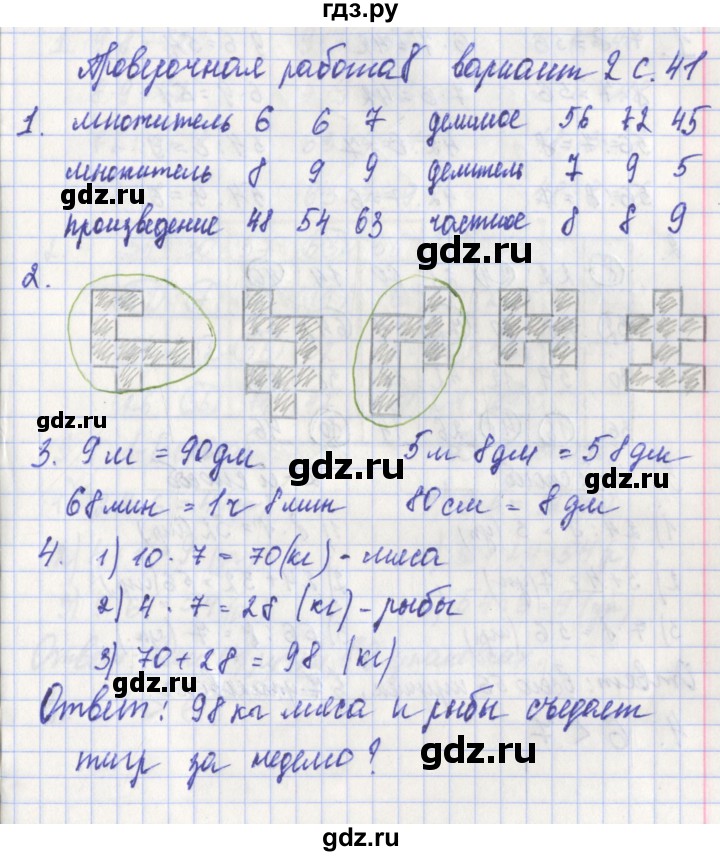 гдз.ру
Проверочная работа 8 вариант 2 с. 41
1. множитель 6 6 7 делимое 56 72 45
множитель 8 9 9 делитель 7 9 5
произведение 48 54 63 частное 8 8 9
gdz.ru
gdz.ru
2.
gdz.ru
gdz.ru
3. 9 м = 90 дм 5 м 8 дм = 58 дм
gdz.ru
68 мин = 1 ч 8 мин 80 см = 8 дм
4. 1) 10 · 7 = 70 (кг) - мяса
2) 4 · 7 = 28 (кг) - рыбы
gdz.ru
3) 70 + 28 = 98 (кг)
gdz.ru
Ответ: 98 кг мяса и рыбы съедает
тигр за неделю?
gdz.ru
gdz.ru